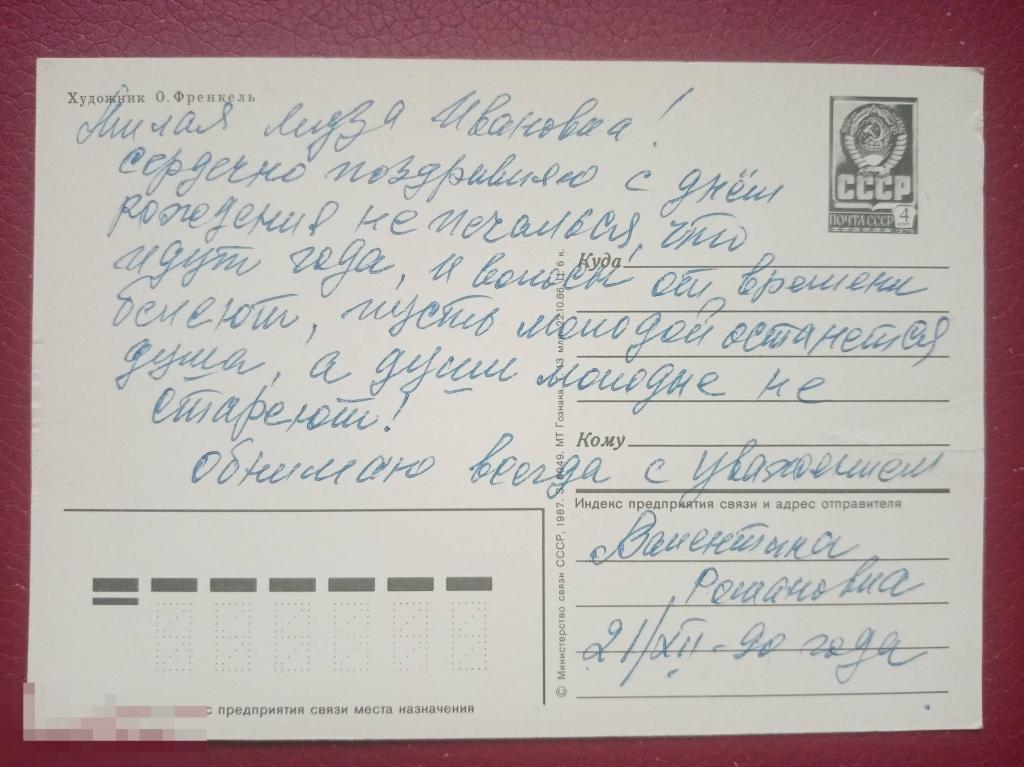 Художник О. Френкель
Милая Луэза Ивановна!
сердечно поздравляю с днём
рождения не печалься, что
идут года, и волосы от времени
белеют, пусть молодой останется
душа, а души молодые не
стареют!
Обнимаю всегда с уважением
Валентина
Романовна
21/XII-90 года
СССР
ПОЧТА СССР 4
1976
Куда
Кому
Индекс предприятия связи и адрес отправителя
© Министерство связи СССР, 1987. МТ Гознака. 10.86. Ц. 6 к.
с предприятия связи места назначения